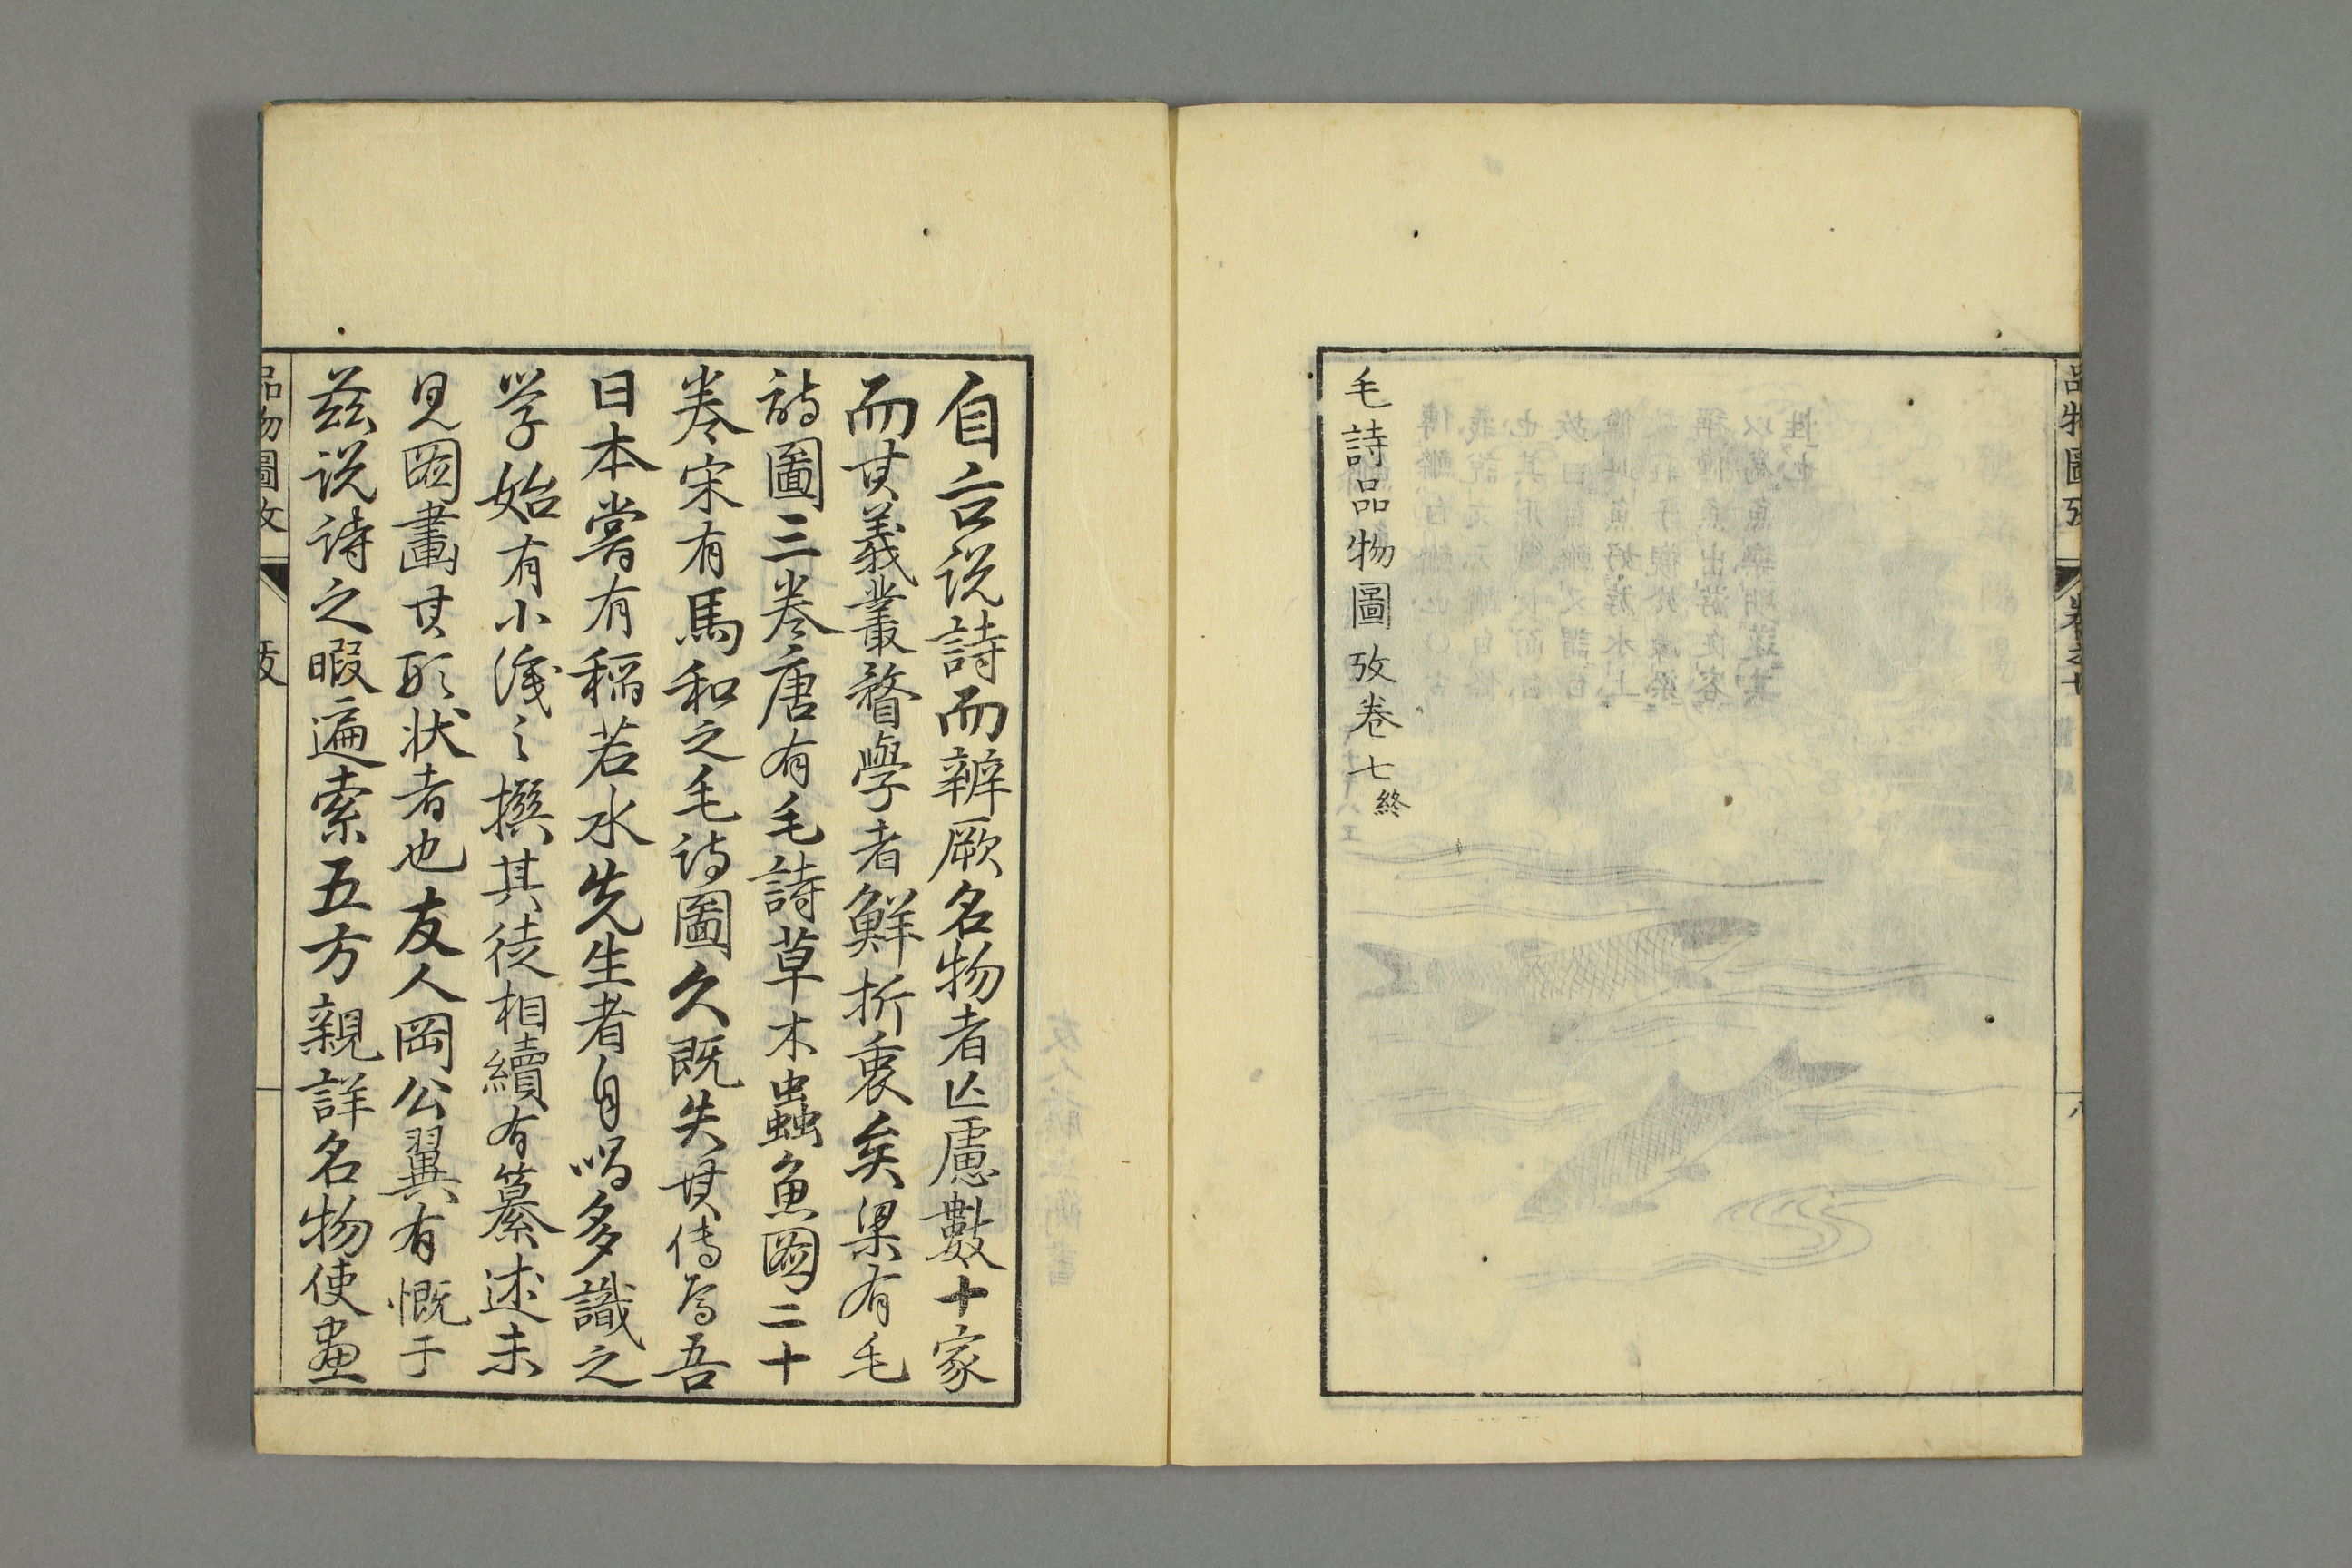 品物圖攷
卷之七
八
毛詩品物圖攷卷七終
自古說詩而辨厥名物者亡慮數十家
而其義叢瞀學者鮮折衷矣梁有毛
詩圖三卷唐有毛詩草木蟲魚圖二十
卷宋有馬和之毛詩圖久既失其傳焉吾
日本嘗有稲若水先生者自唱多識之
学始有小識之撰其徒相續有纂述未
見圖畫其形状者也友人岡公翼有慨于
茲說詩之暇遍索五方親詳名物使畫
品物圖攷
跋